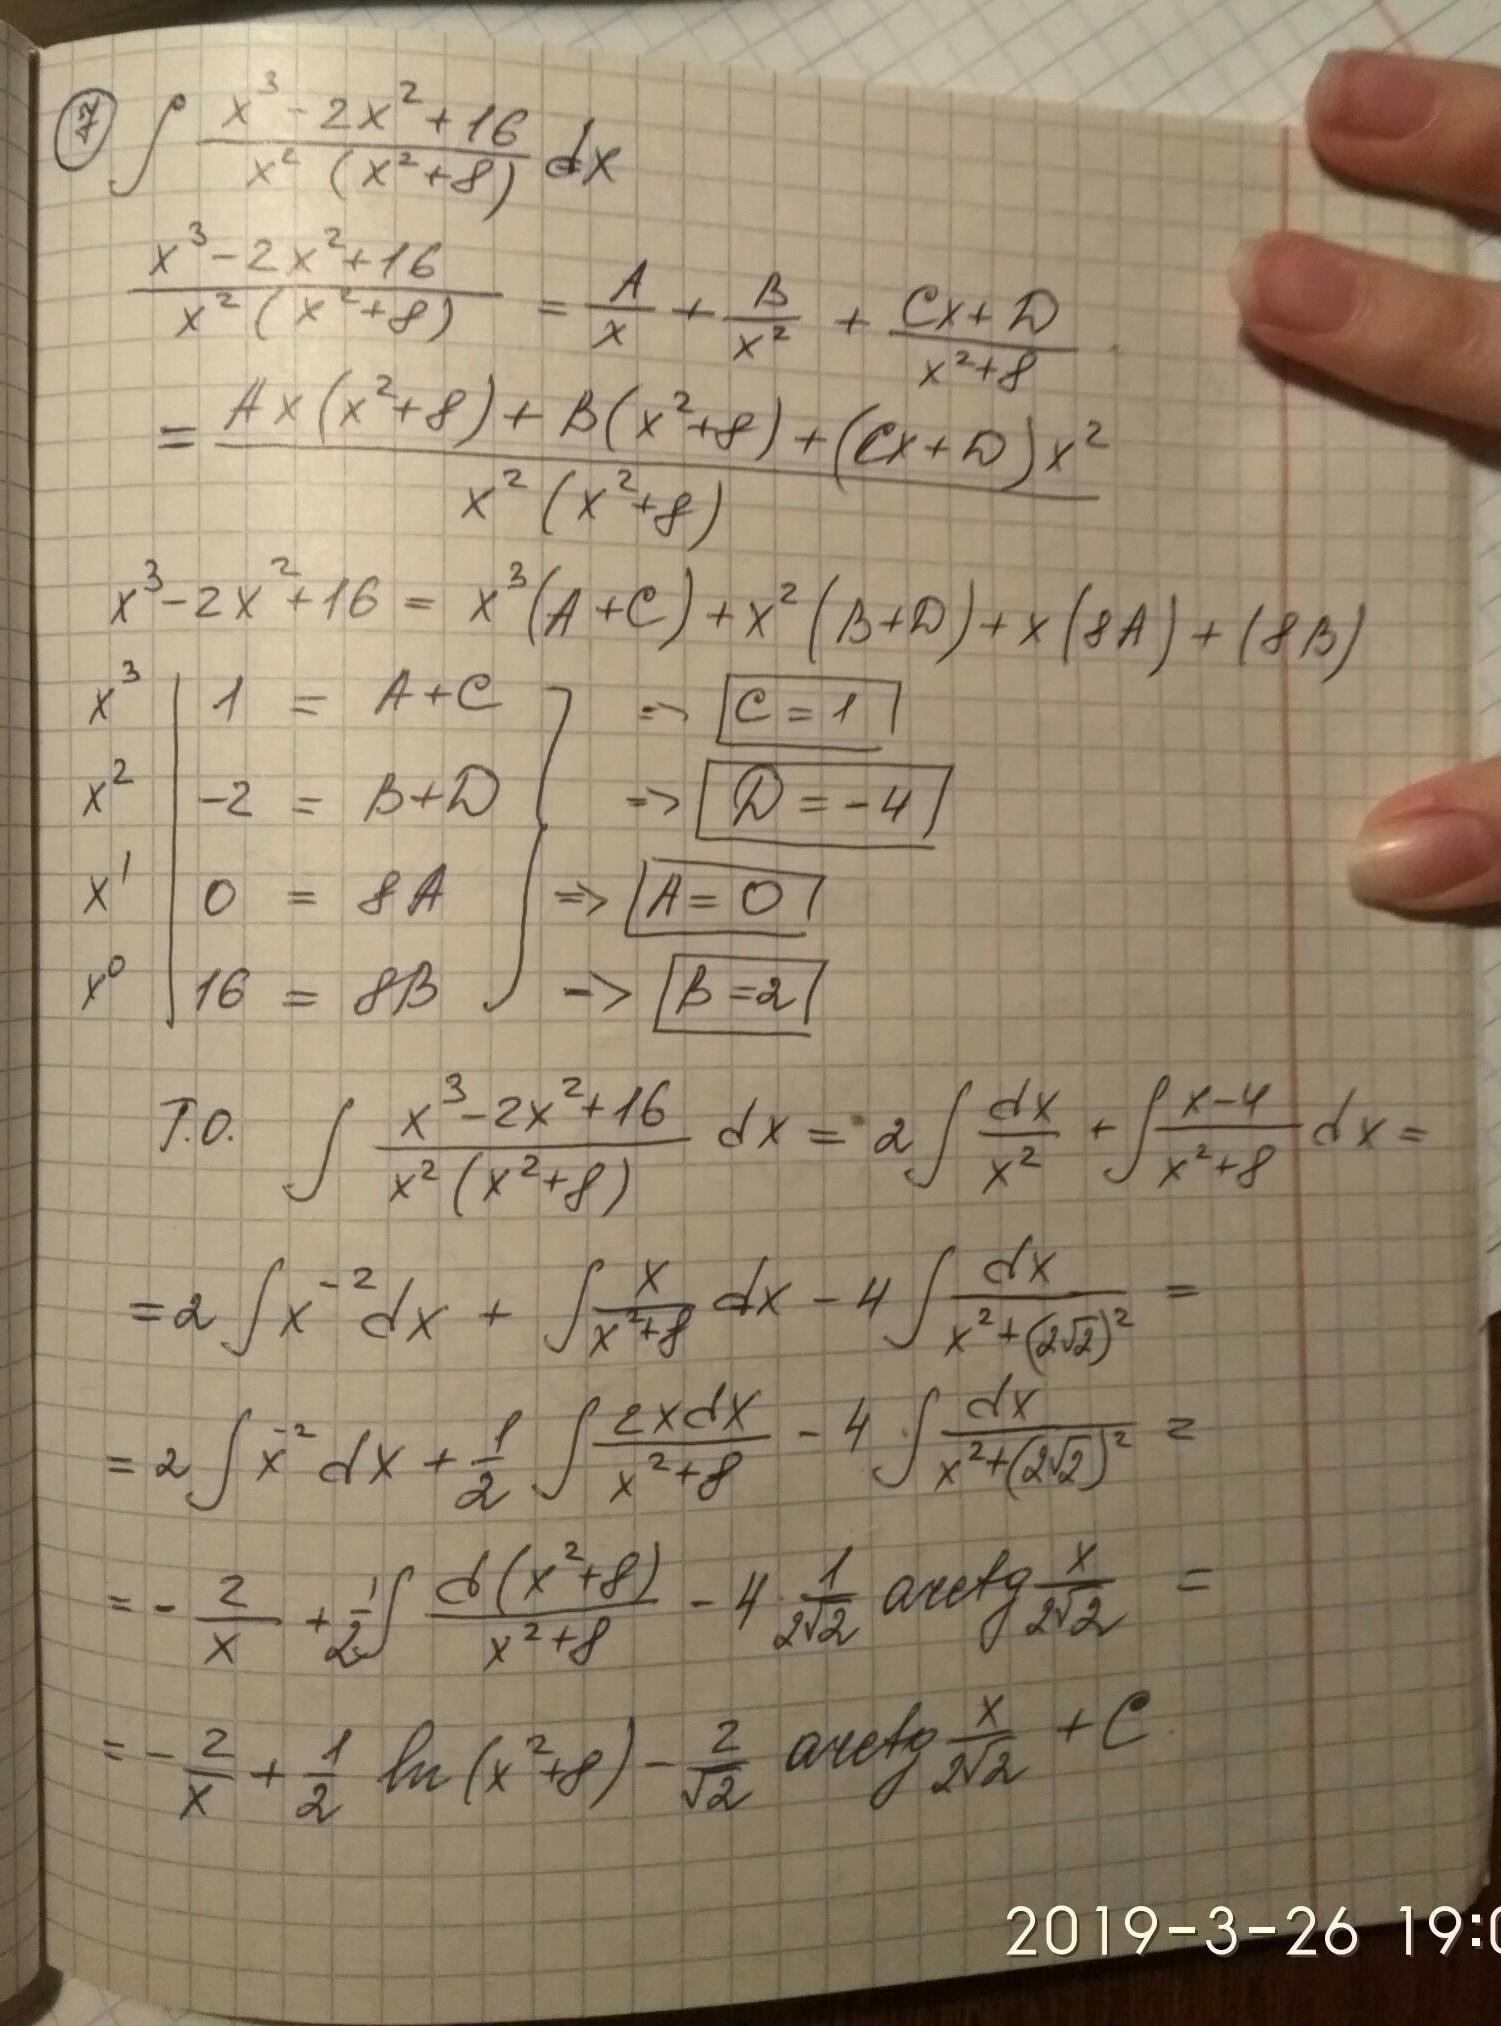 17 ∫ (x³ - 2x² + 16)/(x² (x² + 8)) dx
(x³ - 2x² + 16)/(x² (x² + 8)) = A/x + B/x² + (Cx + D)/(x² + 8)
= (Ax(x² + 8) + B(x² + 8) + (Cx + D)x²)/(x² (x² + 8))
x³ - 2x² + 16 = x³(A + C) + x²(B + D) + x(8A) + (8B)
x³ | 1 = A + C => C = 1
x² | -2 = B + D => D = -4
x¹ | 0 = 8A => A = 0
x⁰ | 16 = 8B -> B = 2
Т.О. ∫ (x³ - 2x² + 16)/(x² (x² + 8)) dx = 2 ∫ dx/x² + ∫ (x - 4)/(x² + 8) dx =
= 2 ∫ x⁻² dx + ∫ x/(x² + 8) dx - 4 ∫ dx/(x² + (2√2)²) =
= 2 ∫ x⁻² dx + 1/2 ∫ 2xdx/(x² + 8) - 4 ∫ dx/(x² + (2√2)²) =
= - 2/x + 1/2 ∫ d(x² + 8)/(x² + 8) - 4 · 1/(2√2) arctg x/(2√2) =
= - 2/x + 1/2 ln(x² + 8) - 2/√2 arctg x/(2√2) + C
2019-3-26 19:0